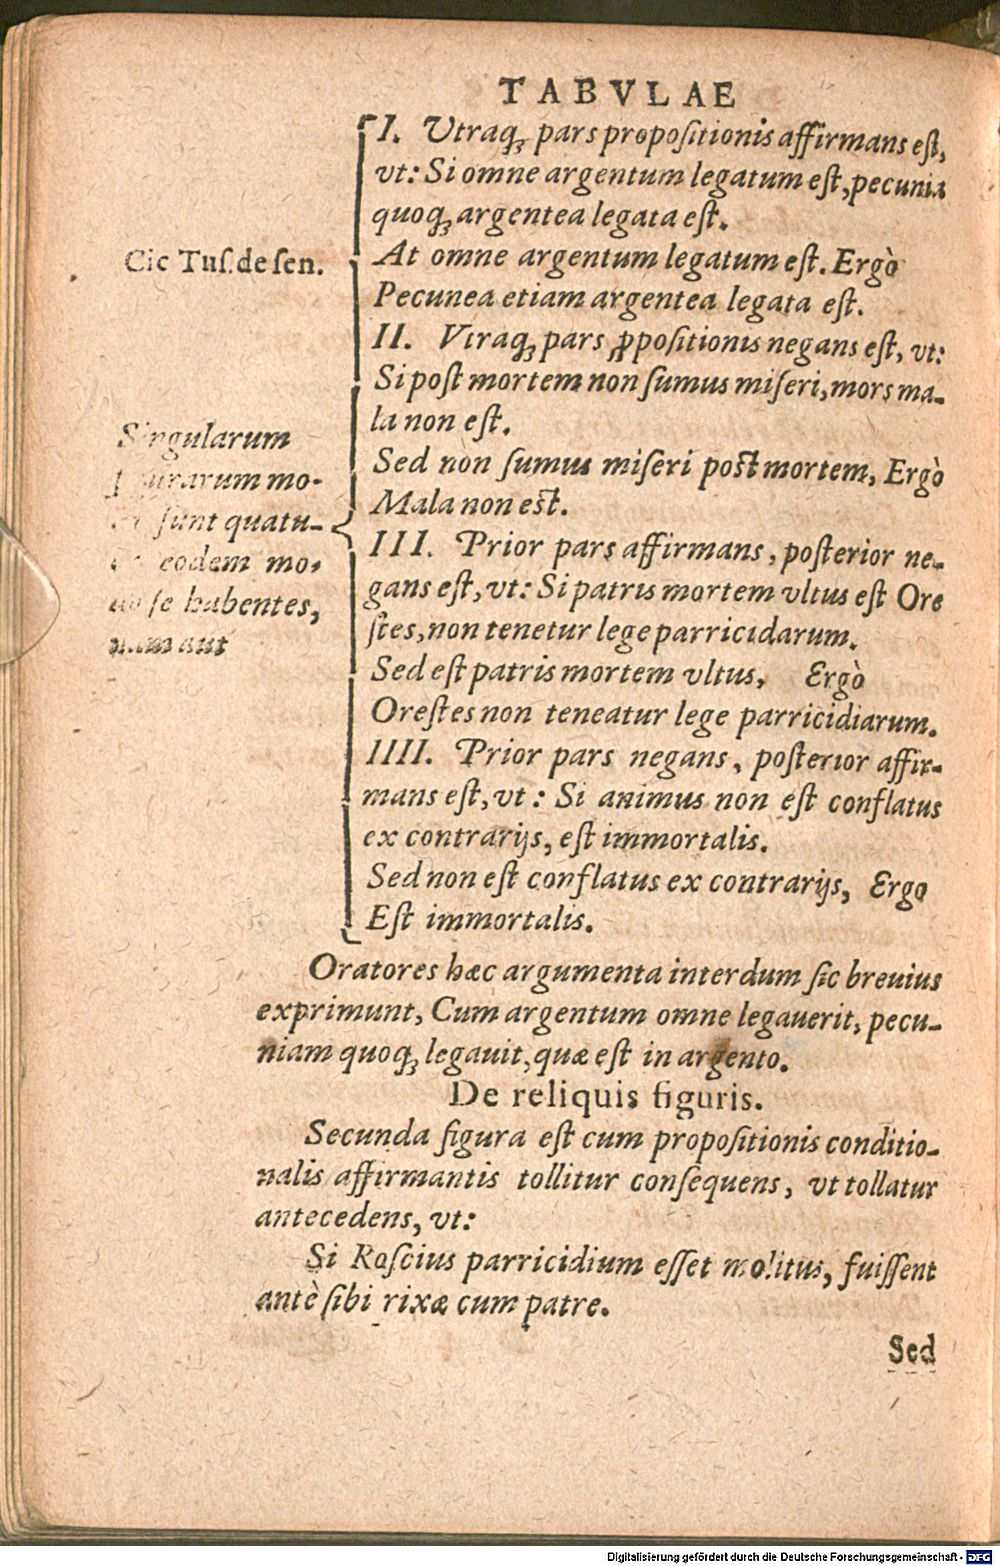 TABVLAE
I. Vtraq; pars propoſitionis affirmans eſt,
vt: Si omne argentum legatum eſt, pecunia
quoq; argentea legata eſt.
Cic Tuſ. de ſen.
At omne argentum legatum eſt. Ergò
Pecunea etiam argentea legata eſt.
II. Vtraq; pars ꝓpoſitionis negans eſt, vt:
Si poſt mortem non ſumus miſeri, mors ma-
la non eſt.
Sed non ſumus miſeri poſt mortem, Ergò
Mala non eſt.
Singularum
mo-
ſunt quatu-
eodem mo-
ſe habentes,
aut
III. Prior pars affirmans, poſterior ne-
gans eſt, vt: Si patris mortem vltus eſt Ore
ſtes, non tenetur lege parricidarum.
Sed eſt patris mortem vltus, Ergò
Oreſtes non teneatur lege parricidiarum.
IIII. Prior pars negans, poſterior affir-
mans eſt, vt: Si animus non eſt conflatus
ex contrarijs, eſt immortalis.
Sed non eſt conflatus ex contrarijs, Ergo
Eſt immortalis.
Oratores hæc argumenta interdum ſic breuius
exprimunt, Cum argentum omne legauerit, pecu-
niam quoq; legauit, quæ eſt in argento.
De reliquis figuris.
Secunda figura eſt cum propoſitionis conditio-
nalis affirmantis tollitur conſequens, vt tollatur
antecedens, vt:
Si Roſcius parricidium eſſet molitus, fuiſſent
antè ſibi rixæ cum patre.
Sed
Digitalisierung gefördert durch die Deutsche Forschungsgemeinschaft - DFG